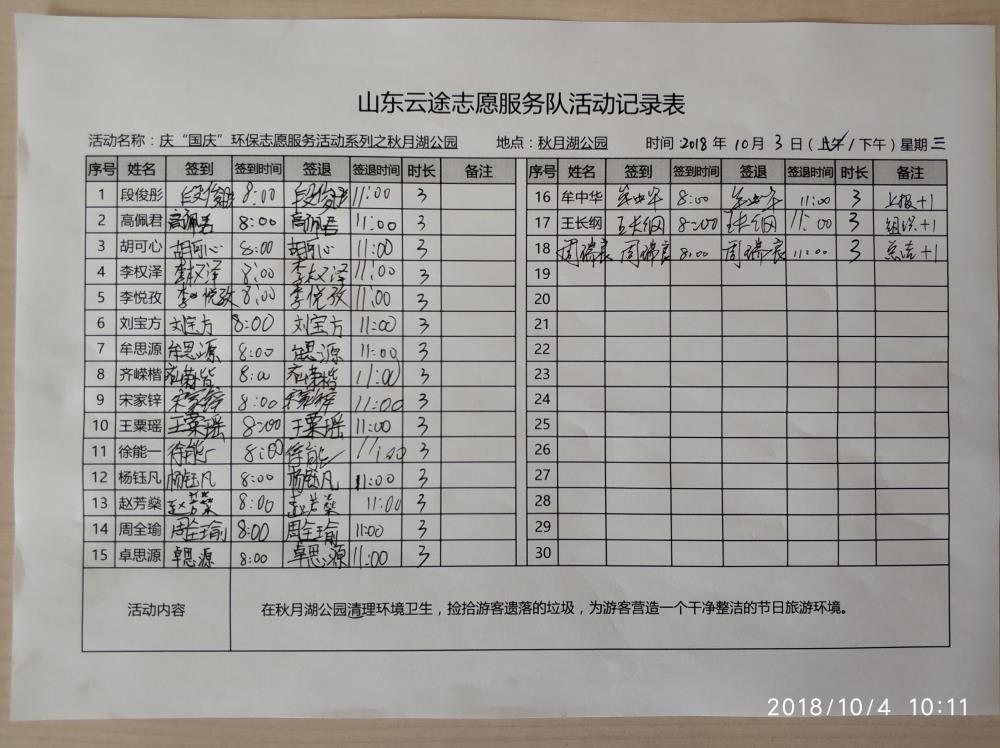 山东云途志愿服务队活动记录表
活动名称：庆“国庆”环保志愿服务活动系列之秋月湖公园 地点：秋月湖公园 时间 2018 年 10 月 3 日（上午/下午）星期 三
序号 姓名 签到 签到时间 签退 签退时间 时长 备注 序号 姓名 签到 签到时间 签退 签退时间 时长 备注
1 段俊彤 段俊彤 8:00 段俊彤 11:00 3 16 牟中华 牟中华 8:00 牟中华 11:00 3 上报+1
2 高佩君 高佩君 8:00 高佩君 11:00 3 17 王长纲 王长纲 8:00 王长纲 11:00 3 组织+1
3 胡可心 胡可心 8:00 胡可心 11:00 3 18 周瑞良 周瑞良 8:00 周瑞良 11:00 3 +1
4 李权泽 李权泽 8:00 李权泽 11:00 3 19
5 李悦孜 李悦孜 8:00 李悦孜 11:00 3 20
6 刘宝方 刘宝方 8:00 刘宝方 11:00 3 21
7 牟思源 牟思源 8:00 牟思源 11:00 3 22
8 齐嵘楷 齐嵘楷 8:00 齐嵘楷 11:00 3 23
9 宋家锌 宋家锌 8:00 宋家锌 11:00 3 24
10 王粟瑶 王粟瑶 8:00 王粟瑶 11:00 3 25
11 徐能一 徐能一 8:00 徐能一 11:00 3 26
12 杨钰凡 杨钰凡 8:00 杨钰凡 11:00 3 27
13 赵芳燊 赵芳燊 8:00 赵芳燊 11:00 3 28
14 周全瑜 周全瑜 8:00 周全瑜 11:00 3 29
15 卓思源 卓思源 8:00 卓思源 11:00 3 30
活动内容 在秋月湖公园清理环境卫生，捡拾游客遗落的垃圾，为游客营造一个干净整洁的节日旅游环境。
2018/10/4 10:11